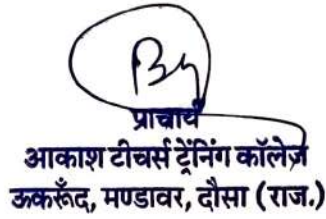 प्राचार्य
आकाश टीचर्स ट्रेंनिंग कॉलेज़
ऊकरूँद, मण्डावर, दौसा (राज.)